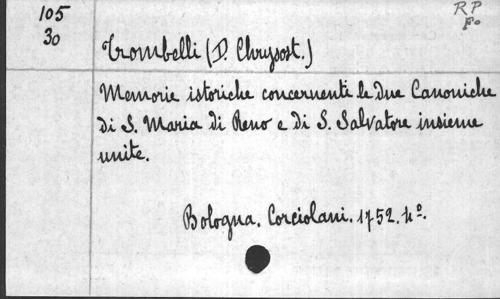 105
30
RP
Fo
Trombelli (D. Chrysost.)
Memorie istoriche concernenti le due Canoniche
di S. Maria di Reno e di S. Salvatore insieme
unite.
Bologna. Corciolani. 1752. 4º.